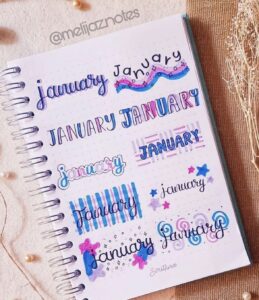 @melijaznotes
january
January
JANUARY JANUARY
january
JANUARY
January
january
january
January